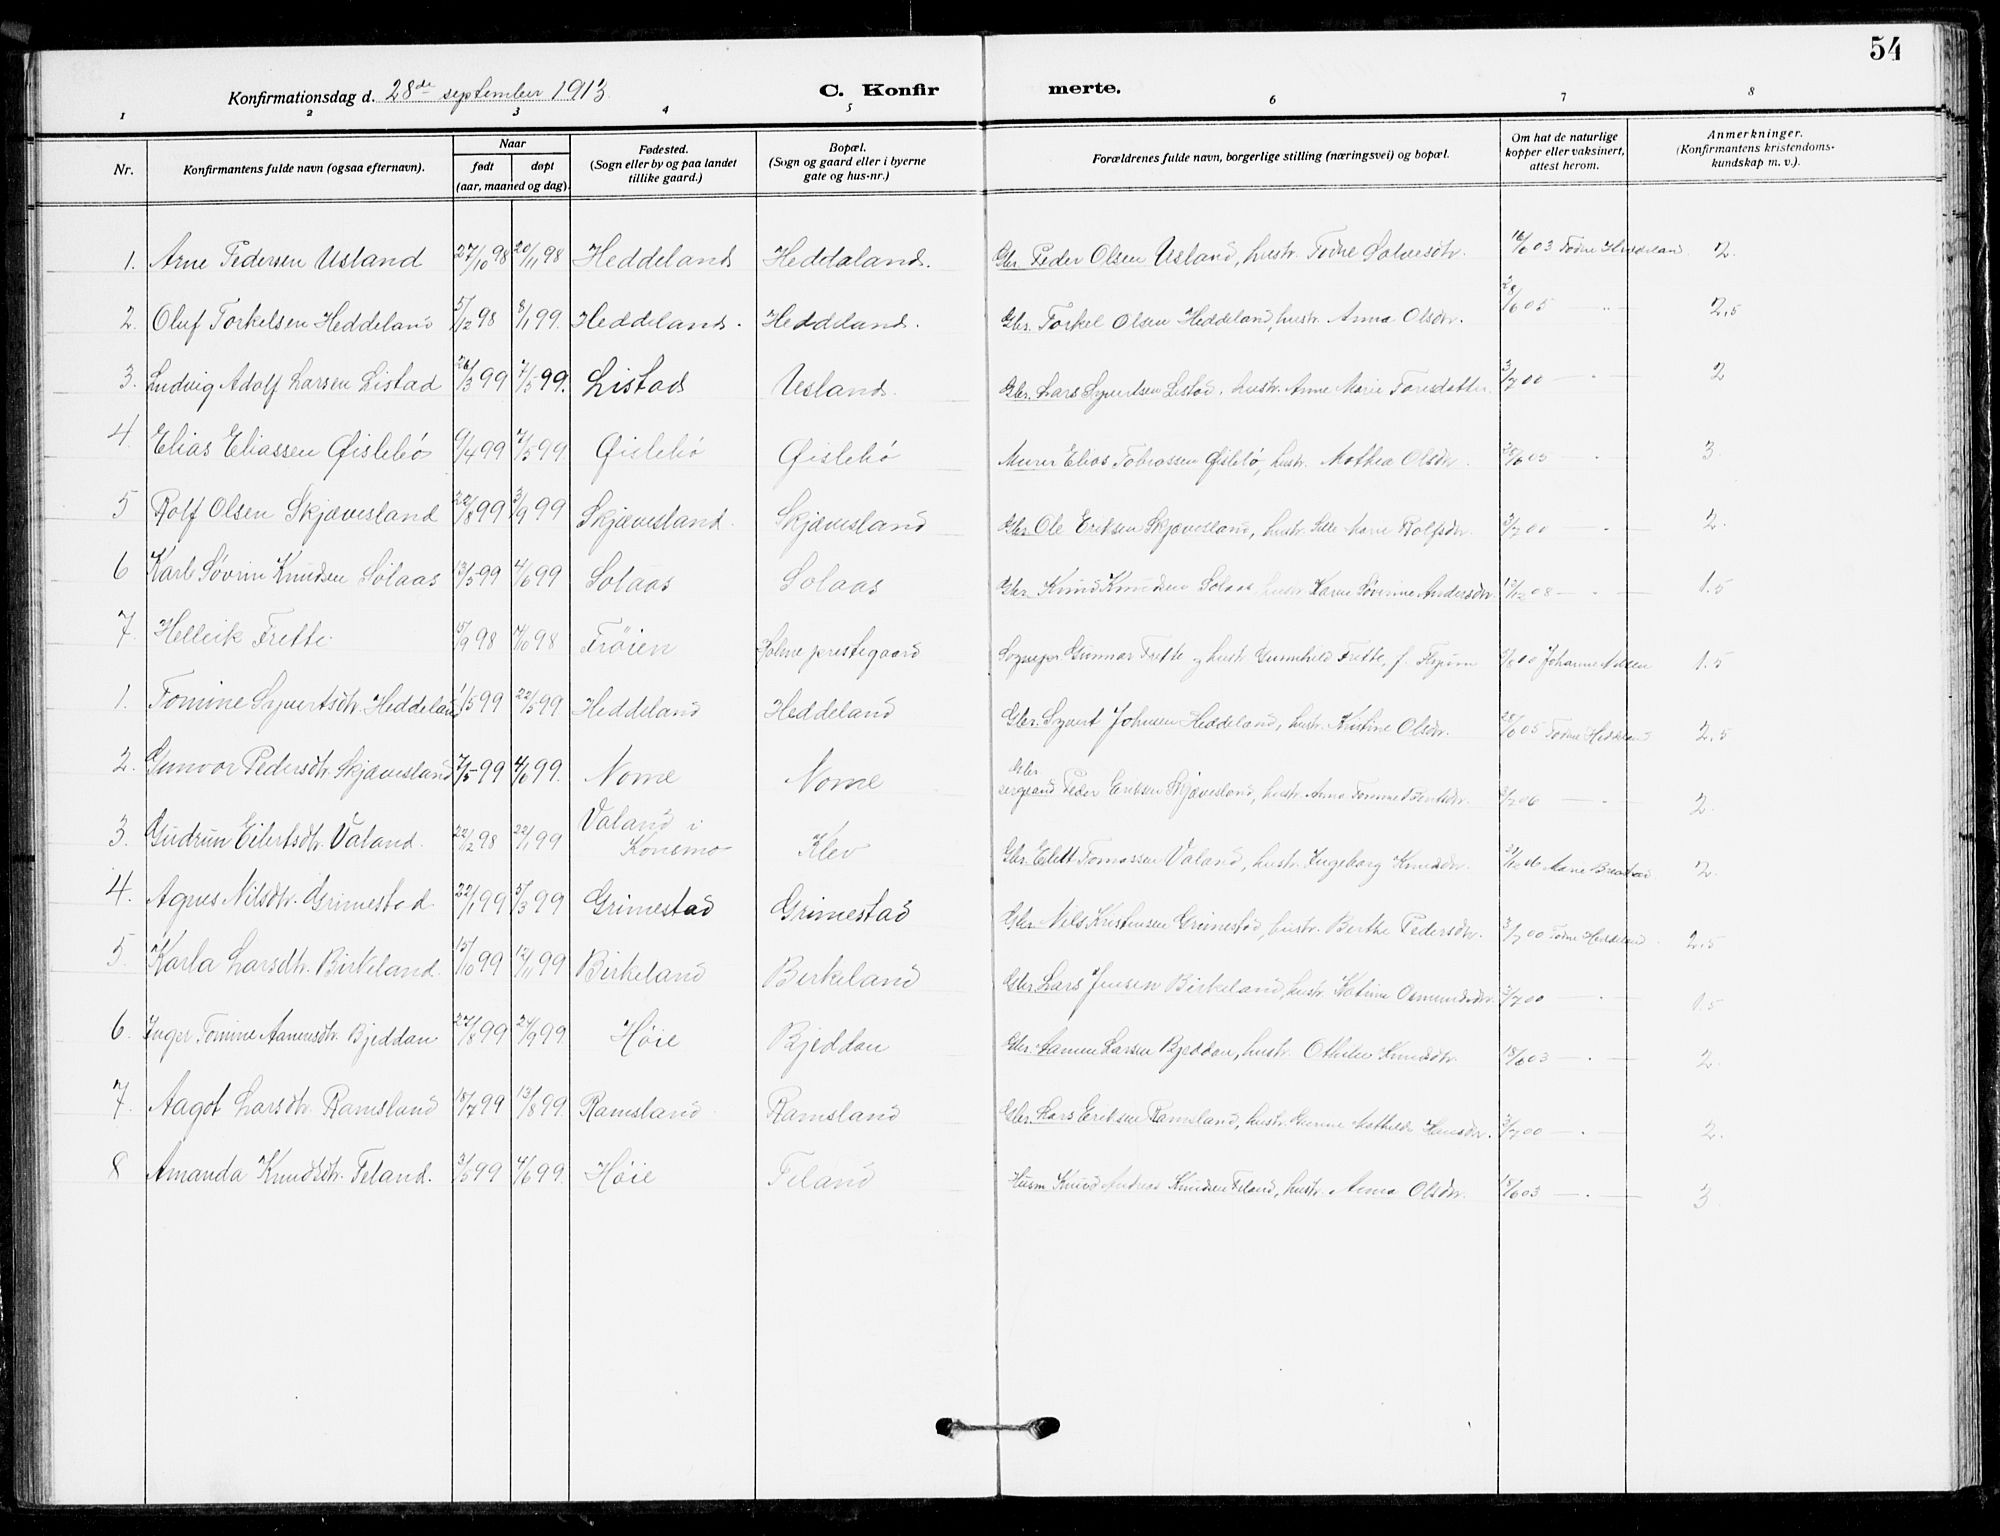 54
Konfirmationsdag d. 28de september 1913. C. Konfir merte.
1 2 3 4 5 6 7 8
Nr. Konfirmantens fulde navn (ogsaa efternavn). Naar født døpt (aar, maaned og dag). Fødested. (Sogn eller by og paa landet tillike gaard.) Bopæl. (Sogn og gaard eller i byerne gate og hus-nr.) Forældrenes fulde navn, borgerlige stilling (næringsvei) og bopæl. Om hat de naturlige kopper eller vaksinert, attest herom. Anmerkninger. (Konfirmantens kristendoms-kundskap m. v.).
1. Arne Pedersen Usland 27/10 98 20/11 98 Heddeland Heddeland. Gbr. Peder Olsen Usland, hustr. Todne Salvesdtr. 16/6 03 Todne Heddeland 2.
2. Oluf Torkelsen Heddeland 5/12 98 8/1 99. Heddeland. Heddeland. Gbr. Torkel Olsen Heddeland, hustr. Anna Olsdtr. /6 05 2,5
3. Ludvig Adolf Larsen Listad 26/3 99 7/5 99. Listad Usland. Gbr. Lars Syvertsen Listad, hustr. Anne Marie Toresdatter. 3/7 00 2
4. Elias Eliassen Øislebø 9/4 99 7/5 99 Øislebø Øislebø Murer Elias Tobiassen Øislebø, hustr. Mathea Olsdtr. /6 05 3.
5 Rolf Olsen Skjævesland 22/8 99 3/9 99 Skjævesland. Skjævesland Gbr. Ole Eriksen Skjævesland, hustr. Marie Rolfsdtr. 3/7 00 2.
6 Karl Søvrin Knudsen Solaas 13/5 99 4/6 99 Solaas Solaas Gbr. Knud Knudsen Solaas, hustr. Karen Søvrine Andersdtr. /12 08 1.5
7. Helleik Trette. 15/9 98 /10 98 Frøien Holme prestegaard Sognepr. Gunnar Trette og hustr. Gunnhild Trette, f. 00 Johanne 1.5
1. Tomine Syvertsdtr. Heddeland 1/5 99 22/5 99 Heddeland Heddeland Gbr. Syvert Johnsen Heddeland, hustr. Kristine Olsdtr. /6 05 Todne Heddeland 2,5
2. Gunvor Pedersdtr. Skjævesland 7/5 99 4/6 99. Nome Nome Gbr. sergeant Peder Eriksen Skjævesland, hustr. Anna /7 06 2.
3. Gudrun Eilertsdtr. Valand. 22/12 98 22/1 99 Valand i Konsmo Klev Gbr. Eilert Tomassen Valand, hustr. Ingeborg Knudsdtr. /12 06 Marie 2.
4. Agnes Nilsdtr. Grimestad. 22/1 99 5/3 99 Grimestad Grimestad Gbr. Nils Kristensen Grimestad, hustr. Berthe Pedersdtr. 3/7 00 Todne Heddeland 2.5
5. Karla Larsdtr. Birkeland. 15/10 99 12/11 99 Birkeland Birkeland Gbr. Lars Jensen Birkeland, hustr. Katrine Osmundsdtr. 3/7 00 1.5
6. Inger Tomine Aanensdtr. Bjeddan 27/8 99 24/9 99. Høie Bjeddan Gbr. Aanen Larsen Bjeddan, hustr. Othilie Knudsdtr. 18/6 03 2.
7. Aagot Larsdtr. Ramsland 18/7 99 13/8 99. Ramsland Ramsland Gbr. Lars Eriksen Ramsland, hustr. Mathilde 3/7 00 2.
8 Amanda Knudsdtr. Feland. 3/5 99 4/6 99. Høie Feland Husm. Knud Andreas Knudsen Feland, hustr. Anna Olsdtr. 18/6 03 3